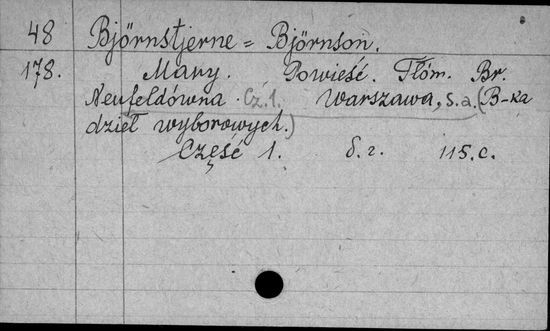 48 Björnstjerne = Björnson.
178. Mary. Powieść. Tłóm. Br.
Neufeldówna. Cz. 1. Warszawa, s.a. (B-ka
dzieł wyborowych.)
Część 1. б. г. 115. с.